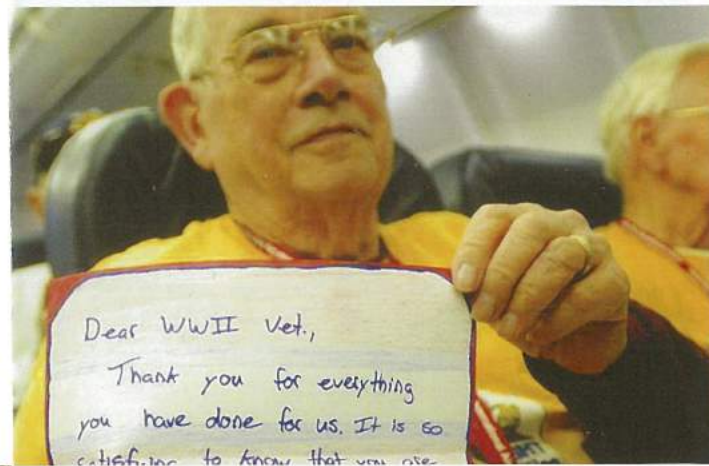 Dear WWII Vet.,
Thank you for everything
you have done for us. It is so
satisfying to know that you are